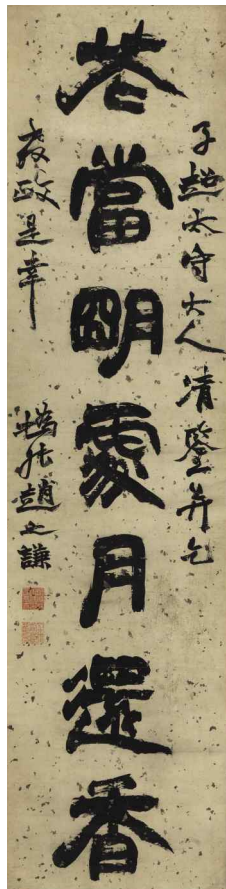 子超太守大人清鑒并乞
花當明處月還香
教政是幸 撝叔趙之謙